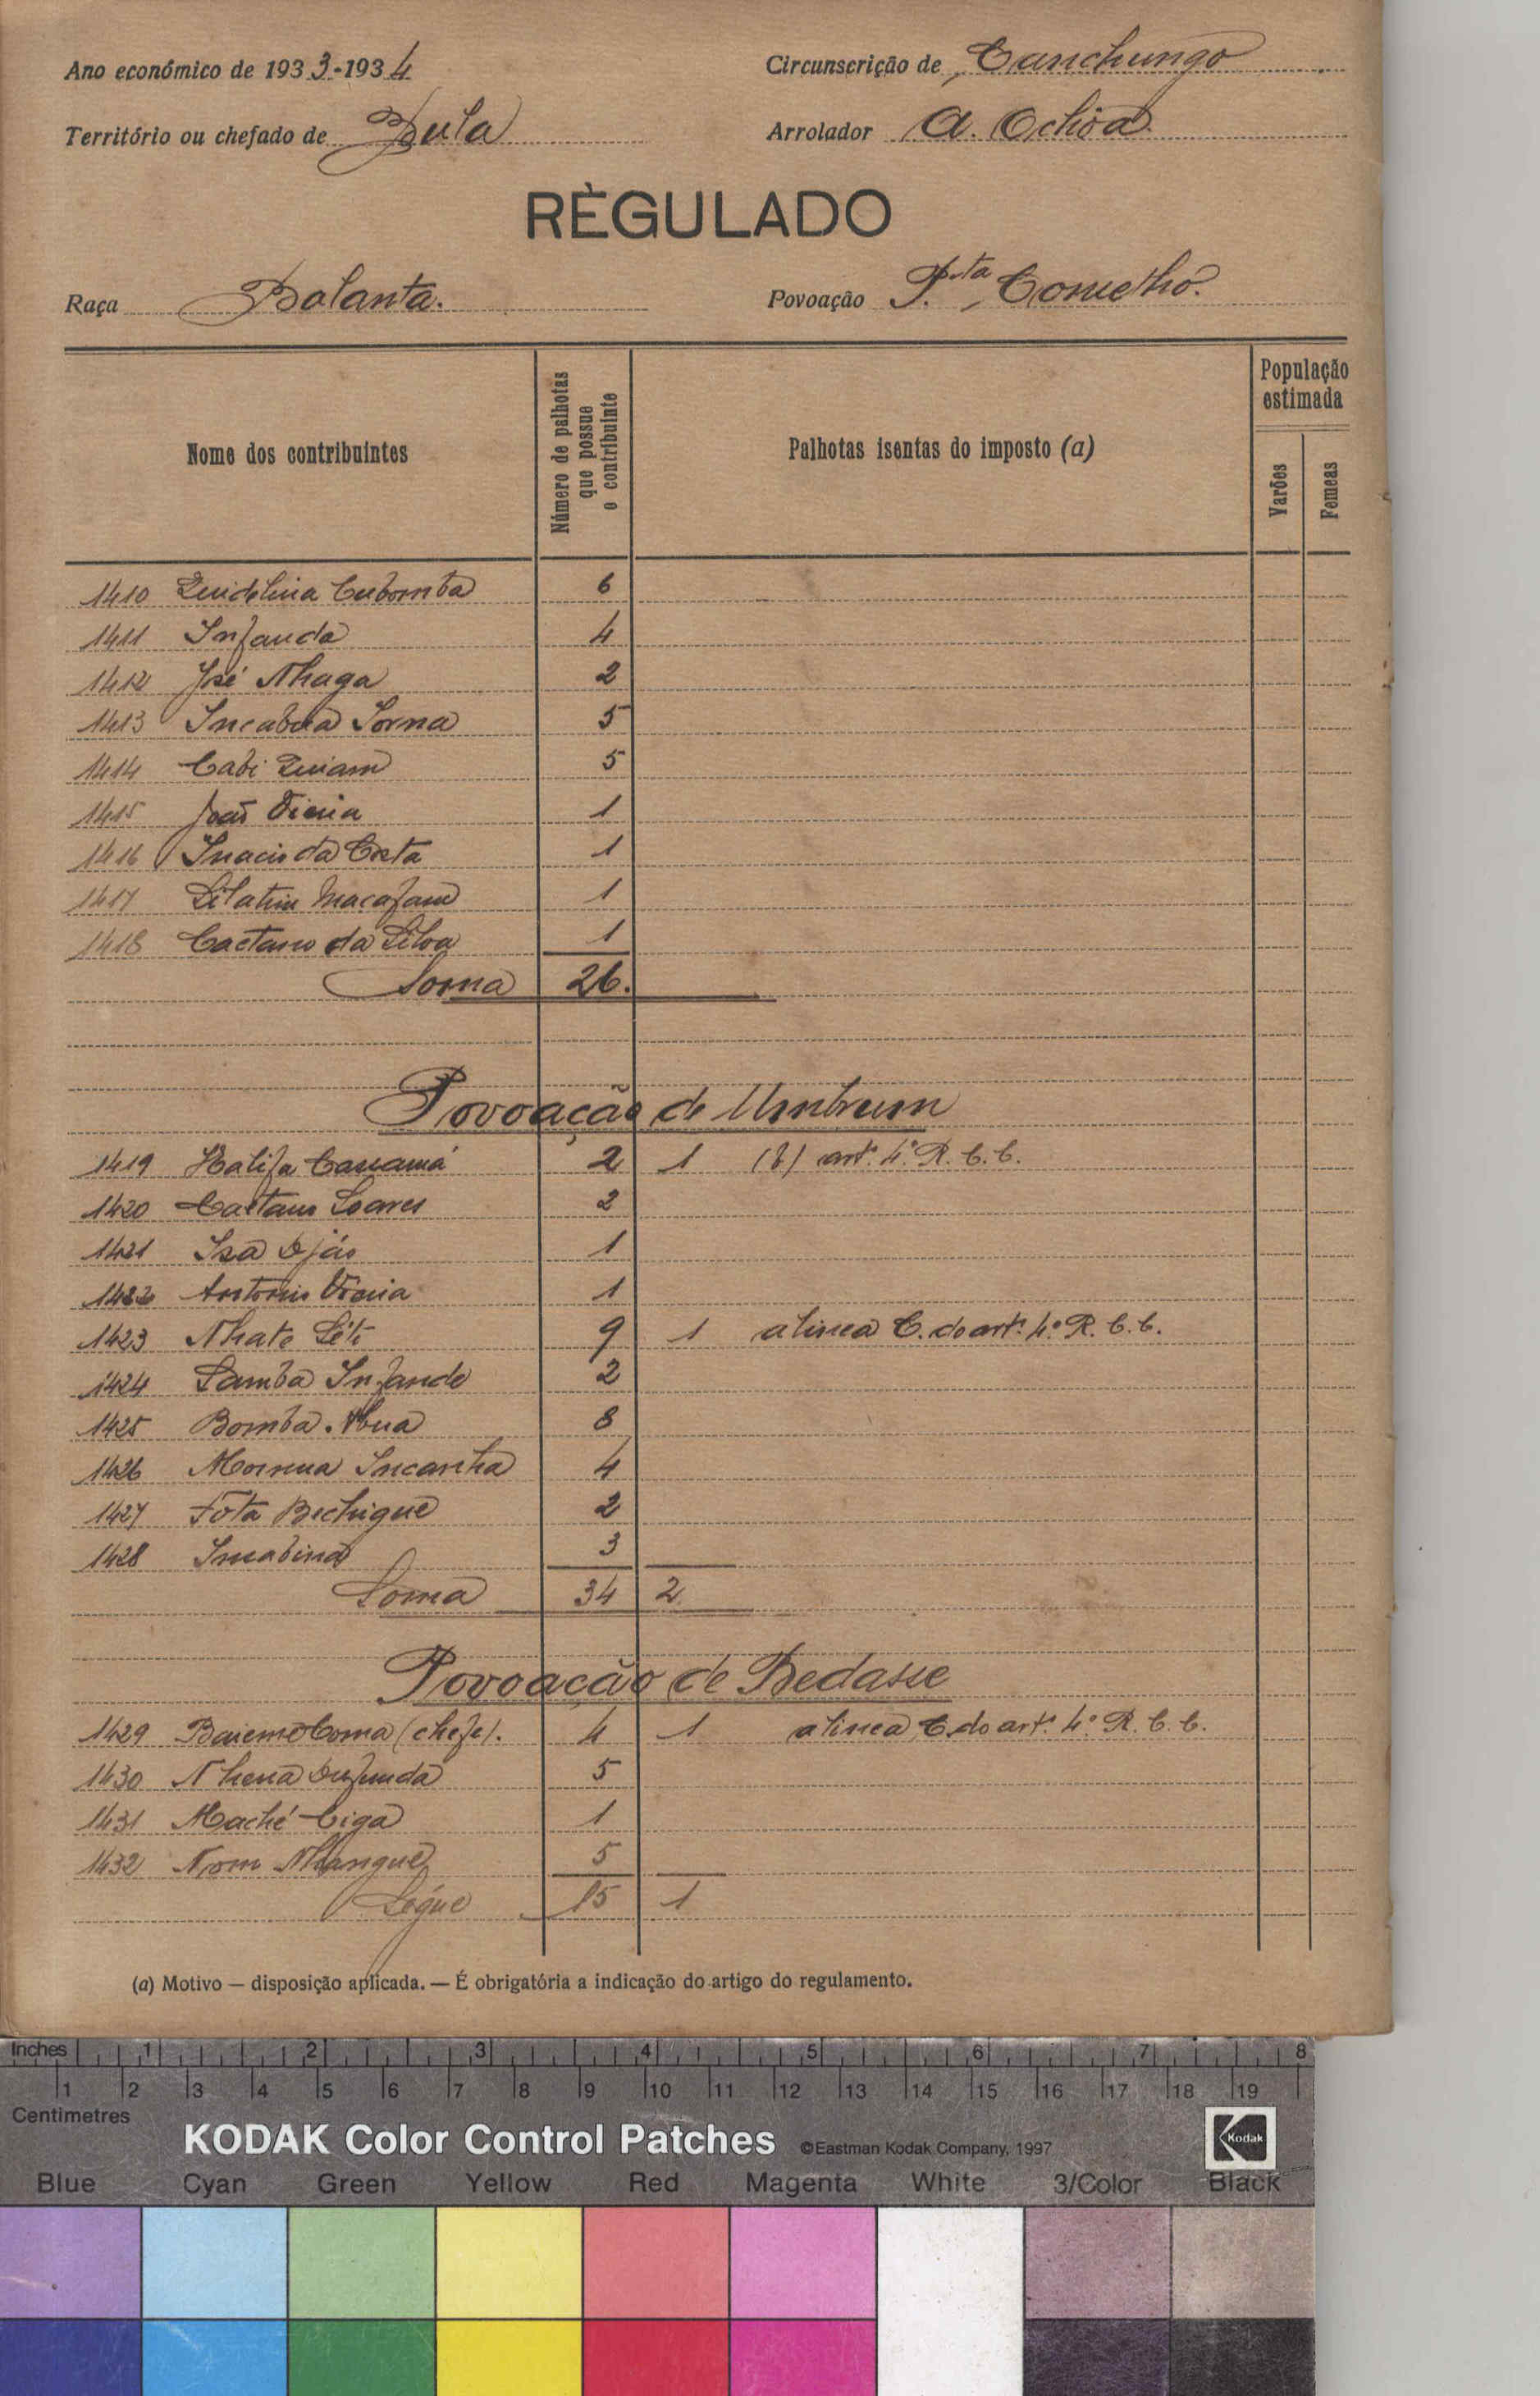 Ano económico de 1933-1934
Circunscrição de Canchungo
Território ou chefado de Bula
Arrolador A. Ochôa
RÈGULADO
Raça Balanta.
Povoação P.ta Conselho.
Nome dos contribuintes
Número de palhotas que possue o contribuinte
Palhotas isentas do imposto (a)
População estimada
Varões
Femeas
1410 Cubomba 6
1411 Infanda 4
1412 José Nhaga 2
1413 Sorna 5
1414 Cabi Quiam 5
1415 João Vieira 1
1416 Inacio da Costa 1
1417 1
1418 Caetano da Silva 1
Soma 26.
Povoação de Umbrum
1419 Malifa Cassamá 2 1 (b) art.º 4.º R. C. C.
1420 Caetano Soares 2
1421 Isa Djáo 1
1422 Antonio Vieira 1
1423 Nhate Séti 9 1 alinea C. do art.º 4.º R. C. C.
1424 Samba Infande 2
1425 Bomba 8
1426 Incanha 4
1427 Fóta Bechigue 2
1428 3
Soma 34 2
Povoação de Bedasse
1429 Coma (chefe). 4 1 alinea C. do art.º 4.º R. C. C.
1430 5
1431 Maché Ciga 1
1432 Nhangue 5
Ségue 15 1
(a) Motivo — disposição aplicada. — É obrigatória a indicação do artigo do regulamento.
Inches 1 2 3 4 5 6 7 8
1 2 3 4 5 6 7 8 9 10 11 12 13 14 15 16 17 18 19
Centimetres
KODAK Color Control Patches ©Eastman Kodak Company, 1997 Kodak
Blue Cyan Green Yellow Red Magenta White 3/Color Black